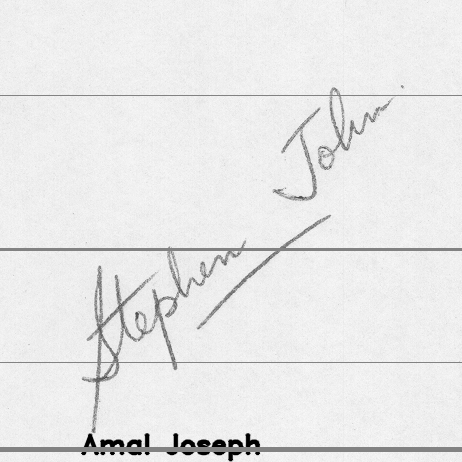 Stephen John
Amal Joseph